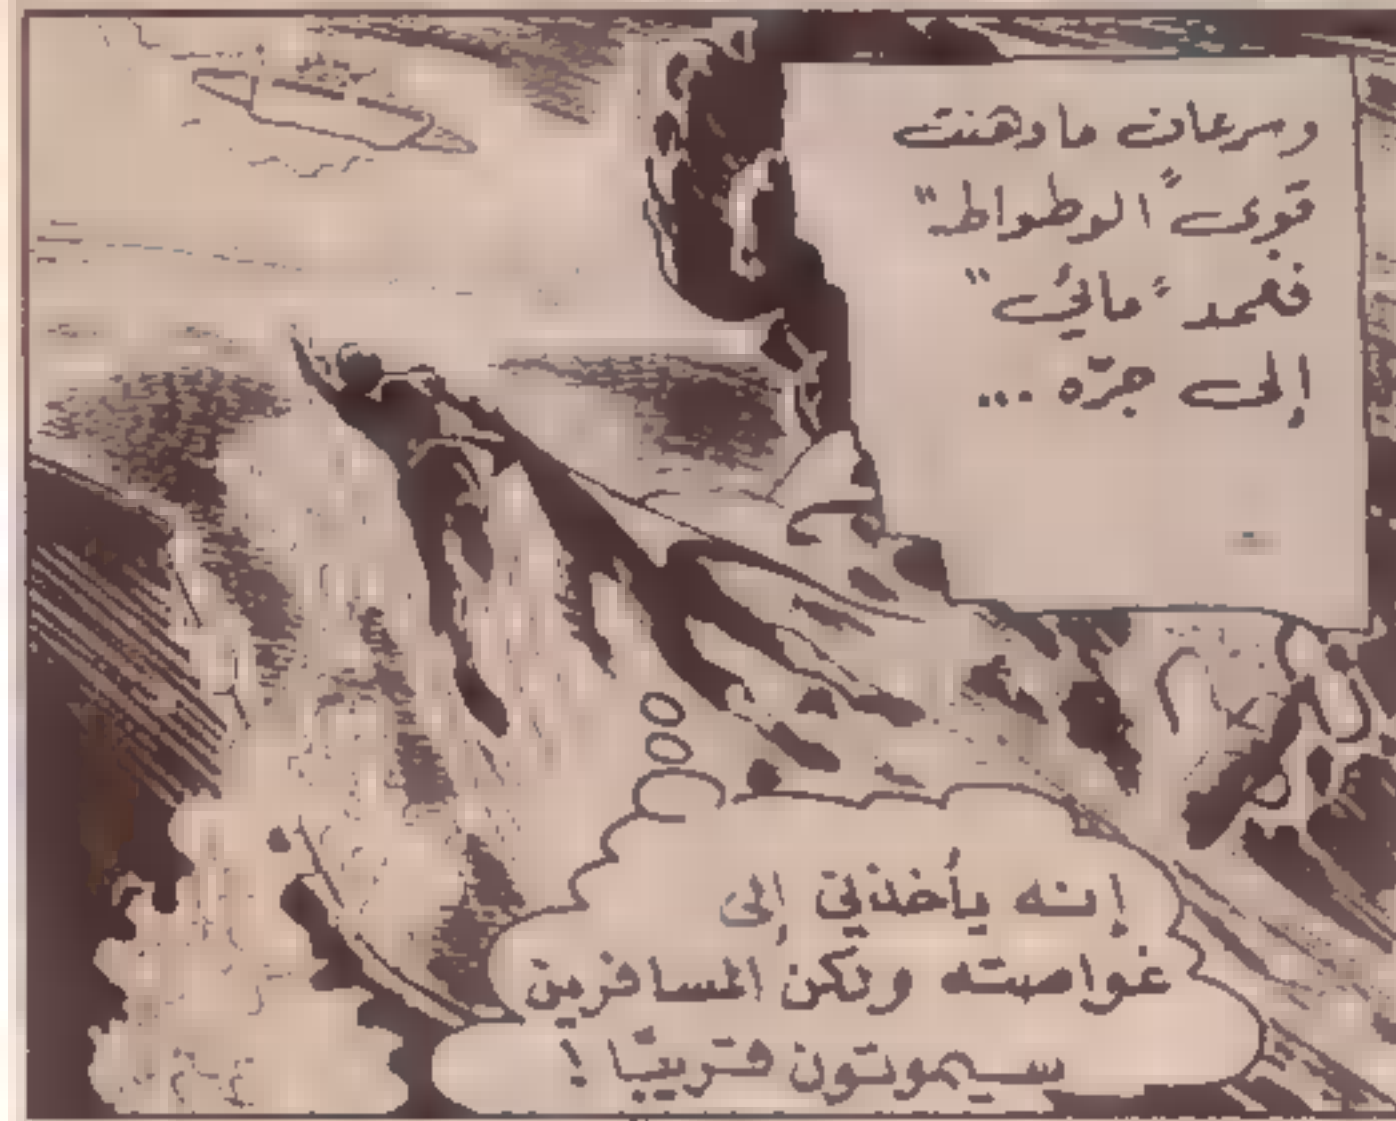 وسرعان ما وهنت
قوى "الوطواط"
فعمد "مائي"
إلى جرّه ...
إنه يأخذني إلى
غواصته ولكن المسافرين
سيموتون قريبًا !